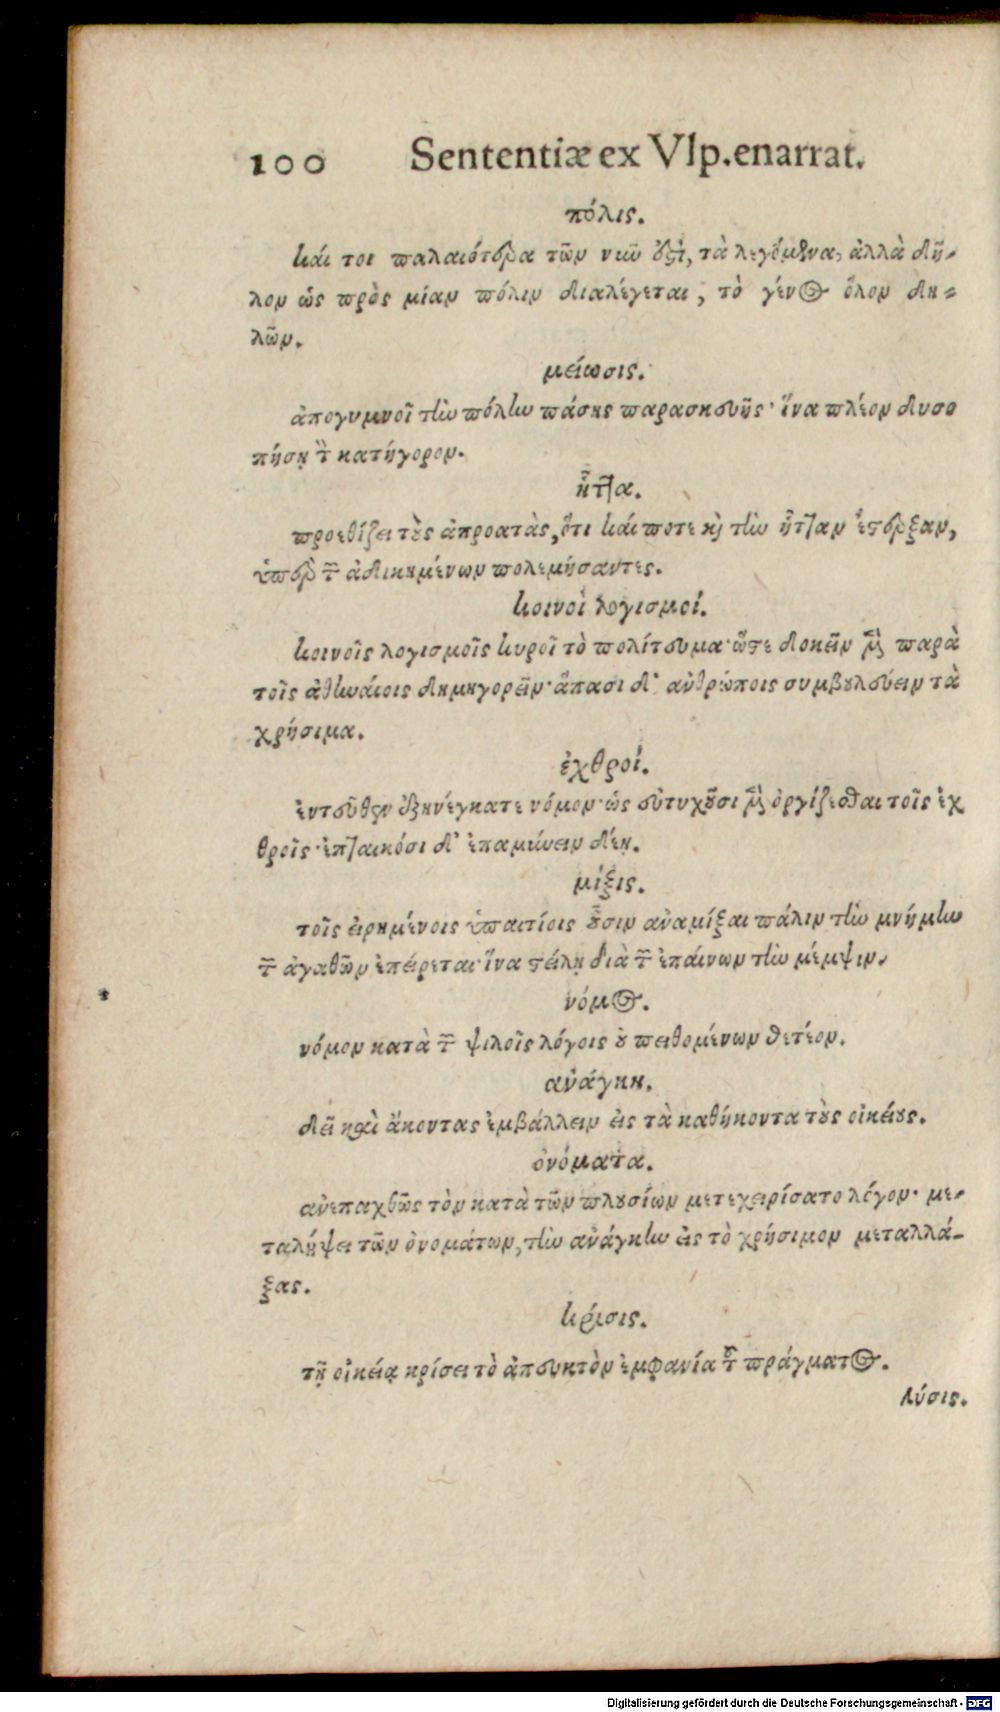 100 Sententiæ ex Vlp. enarrat.
πόλις.
καί τοι παλαιότερα τῶν νῦν ἐστὶ, τὰ λεγόμενα, ἀλλὰ δῆ-
λον ὡς πρὸς μίαν πόλιν διαλέγεται, τὸ γένος ὅλον δη-
λῶν.
μείωσις.
ἀπογυμνοῖ τὴν πόλιν πάσης παρασκευῆς· ἵνα πλέον δυσο
πήσῃ τὸν κατήγορον.
ἧττα.
προεθίζει τοὺς ἀκροατὰς, ὅτι καί ποτε καὶ τὴν ἧτταν ἔστερξαν,
ὑπὲρ τῶν ἀδικημένων πολεμήσαντες.
κοινοὶ λογισμοί.
κοινοῖς λογισμοῖς κυροῖ τὸ πολίτευμα· ὥστε δοκεῖν μὲν παρὰ
τοῖς ἀθηναίοις δημηγορεῖν· ἅπασι δ' ἀνθρώποις συμβουλεύειν τὰ
χρήσιμα.
ἐχθροί.
ἐντεῦθεν ἐξηνέγκατε νόμον· ὡς εὐτυχοῦσι μὲν ὀργίζεσθαι τοῖς ἐχ
θροῖς· ἐπταικόσι δ' ἐπαμύνειν δέῃ.
μίξις.
τοῖς εἰρημένοις ὑπαιτίοις οὖσιν ἀναμίξαι πάλιν τὴν μνήμην
τῶν ἀγαθῶν ἐπείρεται· ἵνα στείλῃ διὰ τῶν ἐπαίνων τὴν μέμψιν.
νόμος.
νόμον κατὰ τῶν ψιλοῖς λόγοις οὐ πειθομένων θετέον.
ἀνάγκη.
δεῖ καὶ ἄκοντας ἐμβάλλειν εἰς τὰ καθήκοντα τοὺς οἰκείους.
ὀνόματα.
ἀνεπαχθῶς τὸν κατὰ τῶν πλουσίων μετεχειρίσατο λόγον· με-
ταλήψει τῶν ὀνομάτων, τὴν ἀνάγκην εἰς τὸ χρήσιμον μεταλλά-
ξας.
κρίσις.
τῇ οἰκείᾳ κρίσει τὸ ἀπευκτὸν ἐμφανία τοῦ πράγματος.
λύσις.
Digitalisierung gefördert durch die Deutsche Forschungsgemeinschaft - DFG